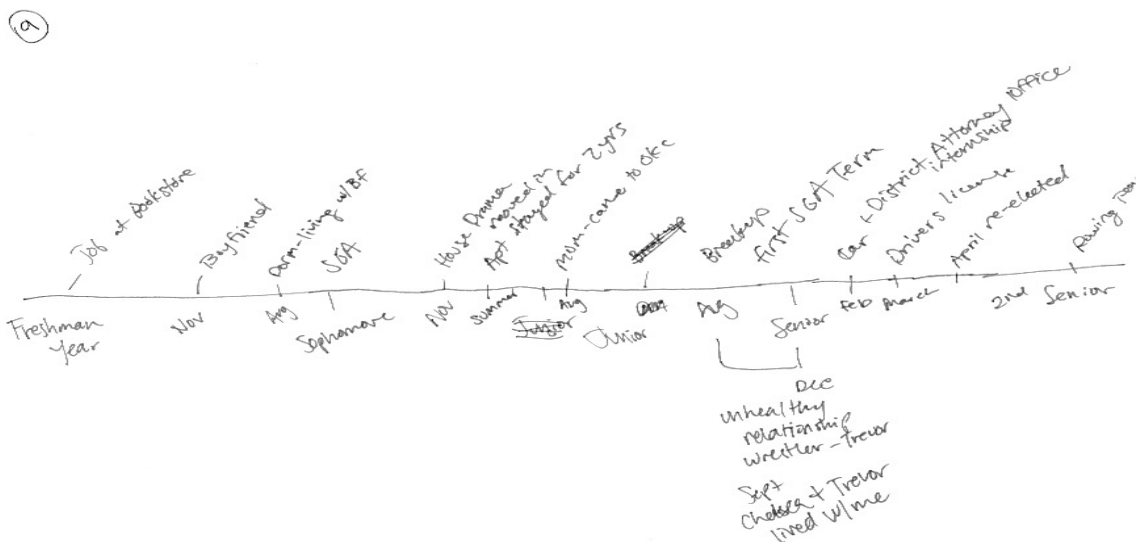 9
Job at Bookstore
Boyfriend
Dorm-living w/BF
SGA
House Drama
moved in
Apt stayed for 2 yrs
Mom-came to OKC
Breakup
Breakup
First SGA Term
Car + District Attorney Office
internship
Drivers license
April re-elected
Rowing
Freshman
Year
Nov
Aug
Sophomore
Nov
Summer
Junior
Aug
Junior
Aug
Senior
Feb
March
2nd Senior
Dec
unhealthy
relationship
wrestler-Trevor
Sept
Chelsea + Trevor
lived w/me